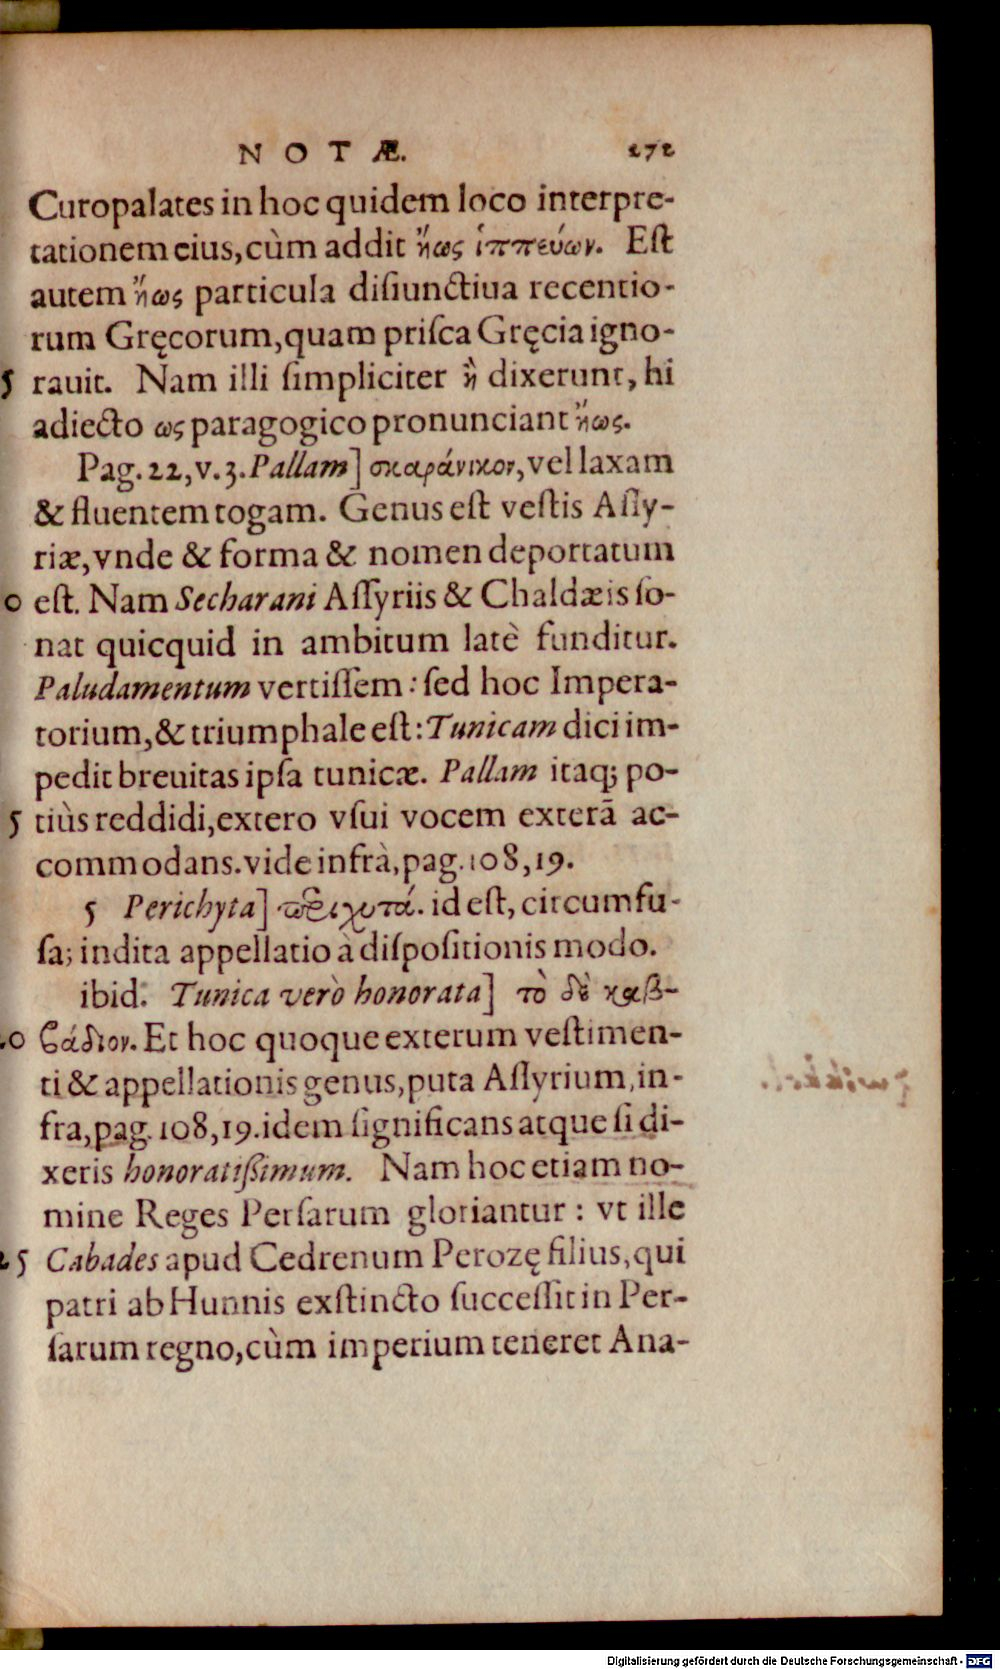 NOTÆ. 272
Curopalates in hoc quidem loco interpre-
tationem eius, cùm addit ἤως ἱππεύων. Est
autem ἤως particula disiunctiua recentio-
rum Gręcorum, quam prisca Gręcia igno-
5 rauit. Nam illi simpliciter ἢ dixerunt, hi
adiecto ως paragogico pronunciant ἤως.
Pag. 22, v. 3. Pallam] σκαράνικον, vel laxam
& fluentem togam. Genus est vestis Assy-
riæ, vnde & forma & nomen deportatum
0 est. Nam Secharani Assyriis & Chaldæis so-
nat quicquid in ambitum latè funditur.
Paludamentum vertissem: sed hoc Impera-
torium, & triumphale est: Tunicam dici im-
pedit breuitas ipsa tunicæ. Pallam itaq; po-
5 tiùs reddidi, extero vsui vocem exterã ac-
commodans. vide infrà, pag. 108, 19.
5 Perichyta] περιχυτά. id est, circumfu-
sa; indita appellatio à dispositionis modo.
ibid. Tunica verò honorata] τὸ δὲ καβ-
20 βάδιον. Et hoc quoque exterum vestimen-
ti & appellationis genus, puta Assyrium, in-
fra, pag. 108, 19. idem significans atque si di-
xeris honoratißimum. Nam hoc etiam no-
mine Reges Persarum gloriantur: vt ille
25 Cabades apud Cedrenum Perozę filius, qui
patri ab Hunnis exstincto successit in Per-
sarum regno, cùm imperium teneret Ana-
Digitalisierung gefördert durch die Deutsche Forschungsgemeinschaft - DFG